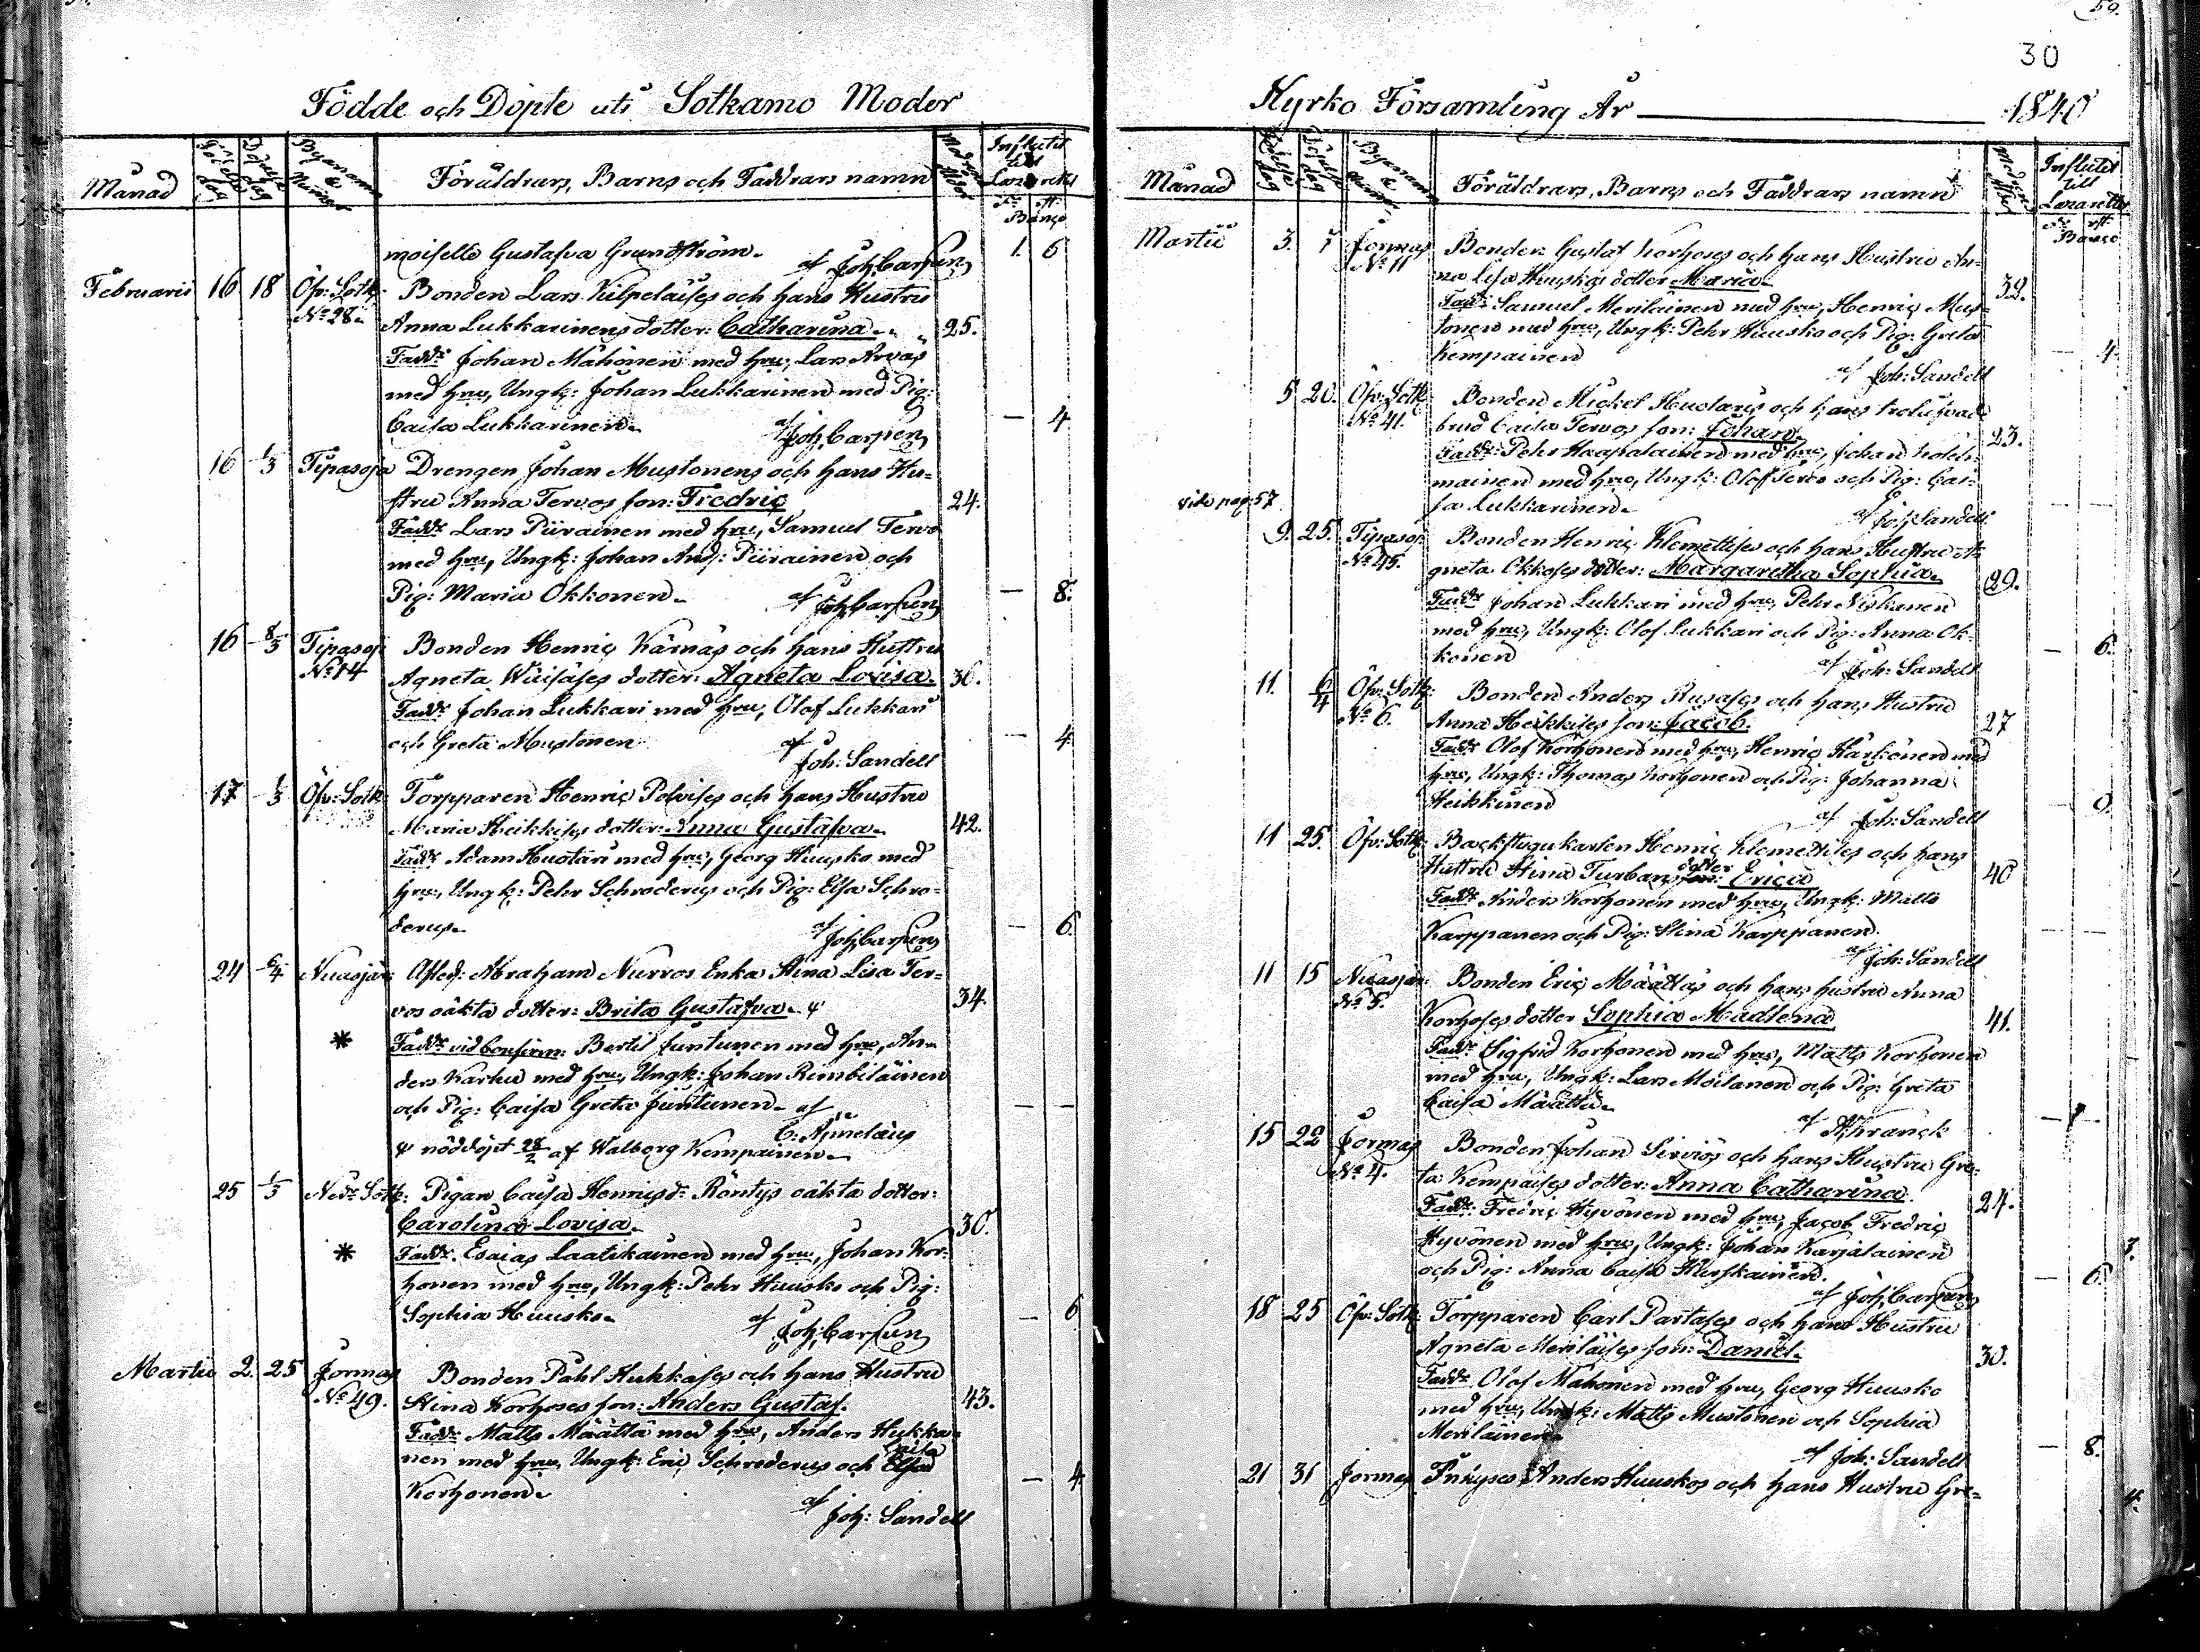 59.
30
Födde och Döpte uti Sotkamo Moder
Månad
Födelse dag
Döpelse dag
Byanamn & Numer
Föräldrars, Barns och Faddrars namn
Modrens ålder
Influtit till Lazarettet
Banco
moiselle Gustafva Grundström. 1. 6
af Joh: Carpen
Februarii 16 18 Öfv: Sotk: Bonden Lars Kilpeläises och hans Hustru
No 28. Anna Lukkarinens dotter: Catharina. 25.
Fadd: Johan Mähönen med hru, Lars Arvas
med hru, Ungk: Johan Lukkarinen med Pig:
Caisa Lukkarinen. — 4
af Joh: Carpen
16 1/3 Tipasoja Drengen Johan Mustonens och hans Hu-
stru Anna Tervos son: Fredric 24.
Fadd: Lars Piirainen med hru, Samuel Tervo
med hru, Ungk: Johan And: Piirainen och
Pig: Maria Okkonen. — 8.
af Joh: Carpen
16 8/3 Tipasoj Bonden Henric Kärnäs och hans Hustru
No 14 Agneta Wäisäses dotter: Agneta Lovisa. 36.
Fadd: Johan Lukkari med hru, Olof Lukkari
och Greta Mustonen — 4
af Joh: Sandell
17 1/3 Öfv: Sotk: Torpparen Henric Polvises och hans Hustru
Maria Heikkises dotter: Anna Gustafva. 42.
Fadd: Adam Huotari med hru, Georg Huusko med
hru, Ungk: Pehr Schroderus och Pig: Elsa Schro-
derus. — 6.
af Joh: Carpen
24 6/4 Nuasjär: Afled: Abraham Nurros Enka Stina Lisa Ter-
vos oäkta dotter: Brita Gustafva. ψ 34.
* Fadd: vid Confirm: Bertil Juntunen med hru, An-
ders Karhu med hru, Ungk: Johan Rimbiläinen
och Pig: Caisa Greta Juntunen. af — —
C: Ajmelæus
ψ nöddöpt 28/2 af Walborg Kempainen.
25 1/3 Nedr Sotk: Pigan Caisa Henricsdr Röntys oäkta dotter:
Carolina Lovisa. 30.
* Fadd: Esaias Laatikainen med hru, Johan Kor-
honen med hru, Ungk: Pehr Huusko och Pig:
Sophia Huusko. — 6
af Joh: Carpen
Martii 2. 25 Jormas Bonden Påhl Hukkases och hans Hustru
No 49. Stina Korhoses son: Anders Gustaf. 43.
Fadd: Matts Määttä med hru, Anders Hukka-
Caisa
nen med hru, Ungk: Eric Schroderus och Elsa
Korhonen. — 4
af Joh: Sandell
Kyrko Församling År 1840
Månad
Födelse dag
Döpelse dag
Byanamn & Numer
Föräldrars, Barns och Faddrars namn
Modrens ålder
Influtit till Lazarettet
Banco
Martii 3. Jormas Bonden Gustaf Korhoses och hans Hustru An-
No 11 na Lisa Huuskos dotter Maria. 32.
Fadd: Samuel Meriläinen med hru, Henric Mus-
tonen med hru, Ungk: Pehr Huusko och Pig: Greta
Kempainen — 4.
af Joh: Sandell
5 20. Öfv: Sotk: Bonden Mickel Huotaris och hans trolofvade
No 41. brud Caisa Tervos son: Johan. 23.
Fadd: Pehr Haapalainen med hru, Johan Holch-
mainen med hru, Ungk: Olof Tervo och Pig: Cai-
vide pag. 57 sa Lukkarinen.
af Joh: Sandell
9. 25. Tipasoj Bonden Henric Klemettises och hans Hustru A-
No 45. gneta Okkoses dotter: Margaretha Sophia. 29.
Fadd: Johan Lukkari med hru, Pehr Niskanen
med hru, Ungk: Olof Lukkari och Pig: Anna Ok-
konen — 6.
af Joh: Sandell
11. 6/4 Öfv: Sotk: Bonden Anders Rusases och hans Hustru
No 6. Anna Heikkises son: Jacob. 27
Fadd: Olof Korhonen med hru, Henric Kärkönen med
hru, Ungk: Thomas Korhonen och Pig: Johanna
Heikkinen
af Joh: Sandell
11 25. Öfv: Sotk: Backstugukarlen Henric Klemettises och hans
dotter
Hustru Stina Turbans son: Erica 40
Fadd: Anders Korhonen med hru, Ungk: Matts
Karppanen och Pig: Stina Karppanen. — —
af Joh: Sandell
11 15 Nuasjär: Bonden Eric Määttäs och hans hustru Anna
No 5. Korhoses dotter Sophia Madlena 41.
Fadd: Sigfrid Korhonen med hru, Matts Korhonen
med hru, Ungk: Lars Moilanen och Pig: Greta
Caisa Määttä.
af A: Franck
15 22 Jormas Bonden Johan Sirviös och hans Hustru Gre-
No 4. ta Kempaises dotter: Anna Catharina. 24.
Fadd: Fredric Hyvönen med hru, Jacob Fredric
Hyvönen med hru, Ungk: Johan Karjalainen
och Pig: Anna Caisa Hurskainen. — 6.
af Joh: Carpen
18 25 Öfv: Sotk: Torpparen Carl Partases och hans Hustru
Agneta Meriläises son: Daniel. 30.
Fadd: Olof Mähönen med hru, Georg Huusko
med hru, Ungk: Matts Mustonen och Sophia
Meriläinen. — 8.
af Joh: Sandell
21 31 Jormas Inhyses Anders Huuskos och hans Hustru Gre-